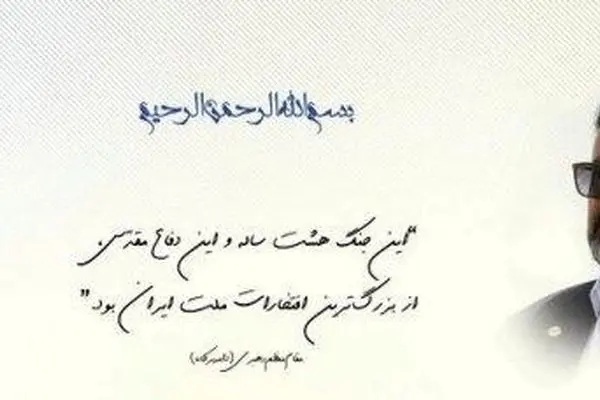 بسم الله الرحمن الرحیم
"این جنگ هشت ساله و این دفاع مقدس،
از بزرگترین افتخارات ملت ایران بود."
مقام معظم رهبری (دامت برکاته)